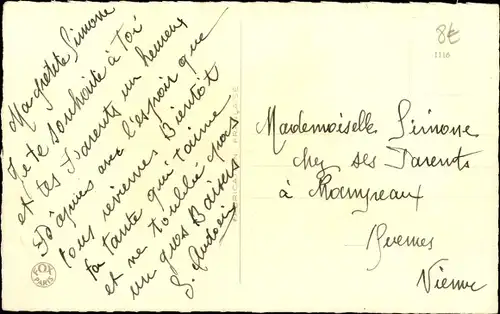 Ma petite Simone
Je te souhaite à Toi
et tes Parents un heureux
Pâques avec l'espoir que
tous reviennes Bientot
ta tante qui t'aime
et ne t'oublie pas
un gros Baisers
S.
8€
1116
Mademoiselle Simone
chez ses Parents
à
Vienne
FABRICATION FRANÇAISE
FOX
PARIS